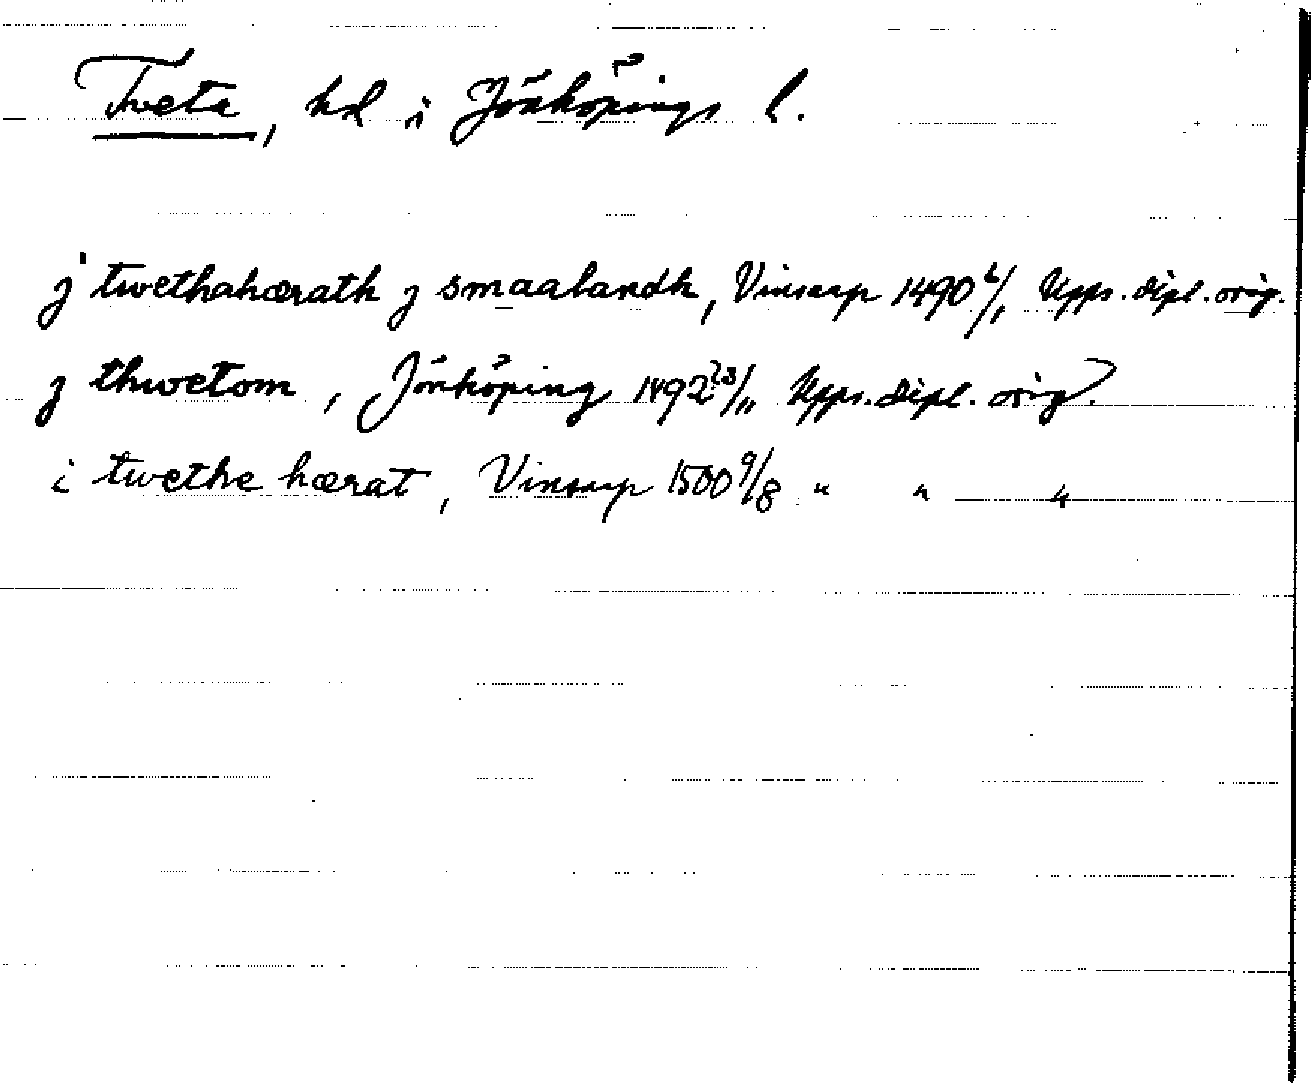 Tveta, hd i Jönköpings l.
j twethahærath j smaalandh, Vinsarp 1490 6/1 Upps. dipl. orig.
j thwetom, Jönköping 1492 23/11 Upps. dipl. orig.
i twethe hærat, Vinsarp 1500 9/8 " " "